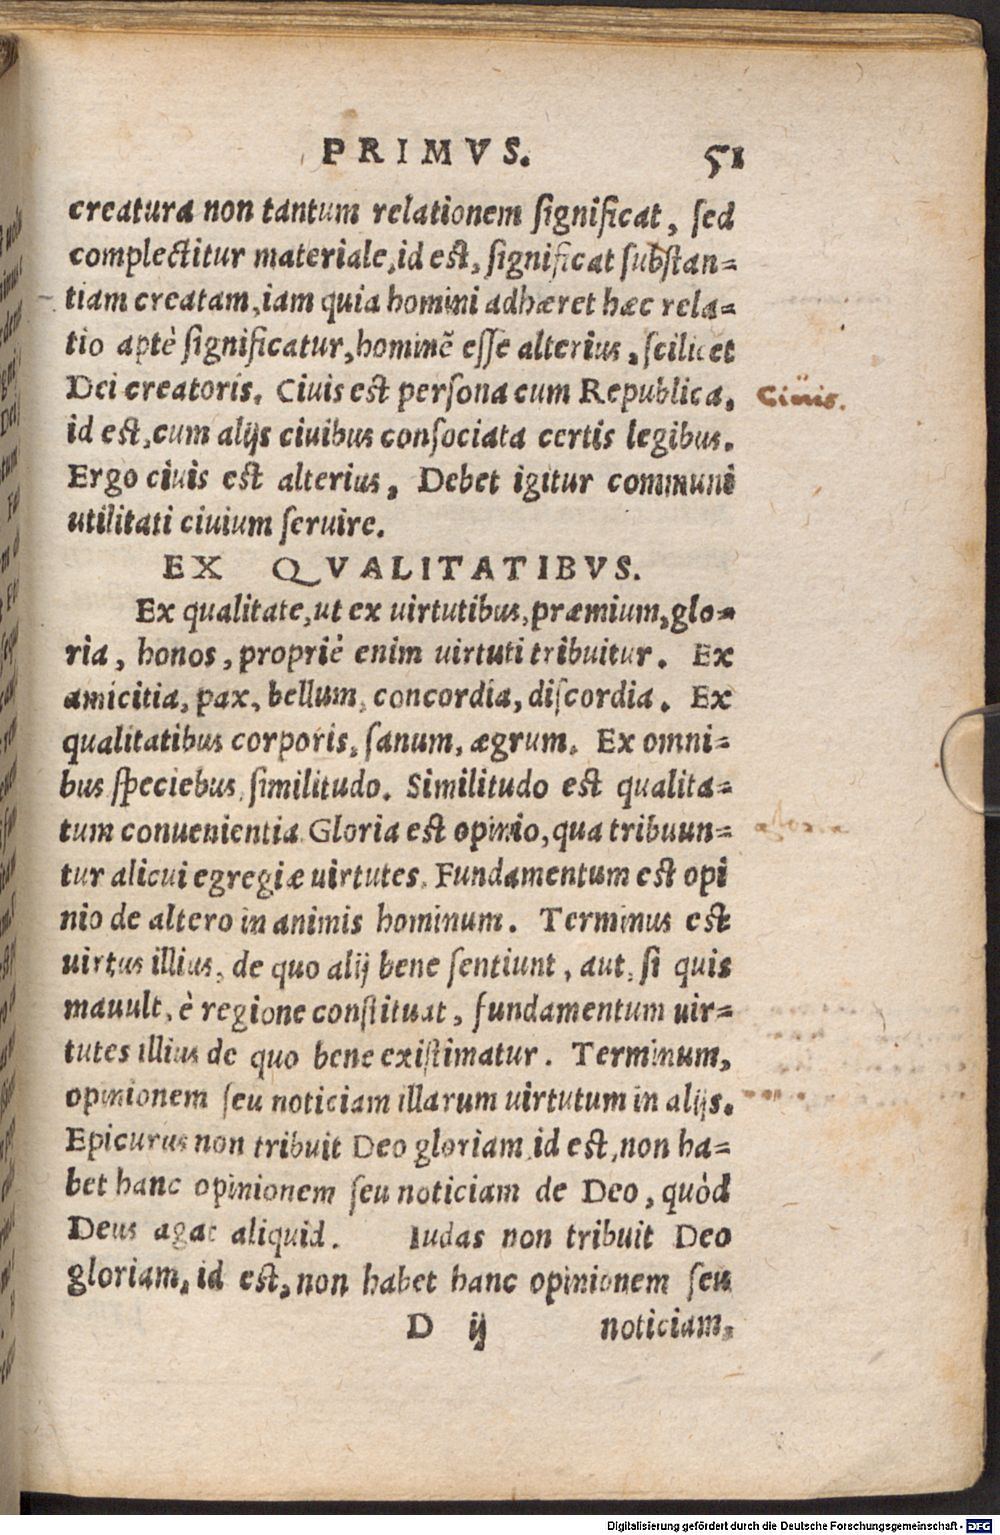 PRIMVS. 51
creatura non tantum relationem significat, sed
complectitur materiale, id est, significat substan=
tiam creatam, iam quia homini adhæret hæc rela=
tio aptè significatur, hominē esse alterius, scilicet
Dei creatoris. Ciuis est persona cum Republica, Ciüis.
id est, cum alijs ciuibus consociata certis legibus.
Ergo ciuis est alterius, Debet igitur communi
utilitati ciuium seruire.
EX QVALITATIBVS.
Ex qualitate, ut ex uirtutibus, præmium, glo=
ria, honos, propriè enim uirtuti tribuitur. Ex
amicitia, pax, bellum, concordia, discordia. Ex
qualitatibus corporis, sanum, ægrum. Ex omni=
bus speciebus, similitudo. Similitudo est qualita=
tum conuenientia Gloria est opinio, qua tribuun= gloria
tur alicui egregiæ uirtutes. Fundamentum est opi
nio de altero in animis hominum. Terminus est
uirtus illius, de quo alij bene sentiunt, aut, si quis
mauult, è regione constituat, fundamentum uir=
tutes illius de quo bene existimatur. Terminum,
opinionem seu noticiam illarum uirtutum in alijs.
Epicurus non tribuit Deo gloriam, id est, non ha=
bet hanc opinionem seu noticiam de Deo, quòd
Deus agat aliquid. Iudas non tribuit Deo
gloriam, id est, non habet hanc opinionem seu
D ij noticiam,
Digitalisierung gefördert durch die Deutsche Forschungsgemeinschaft - DFG